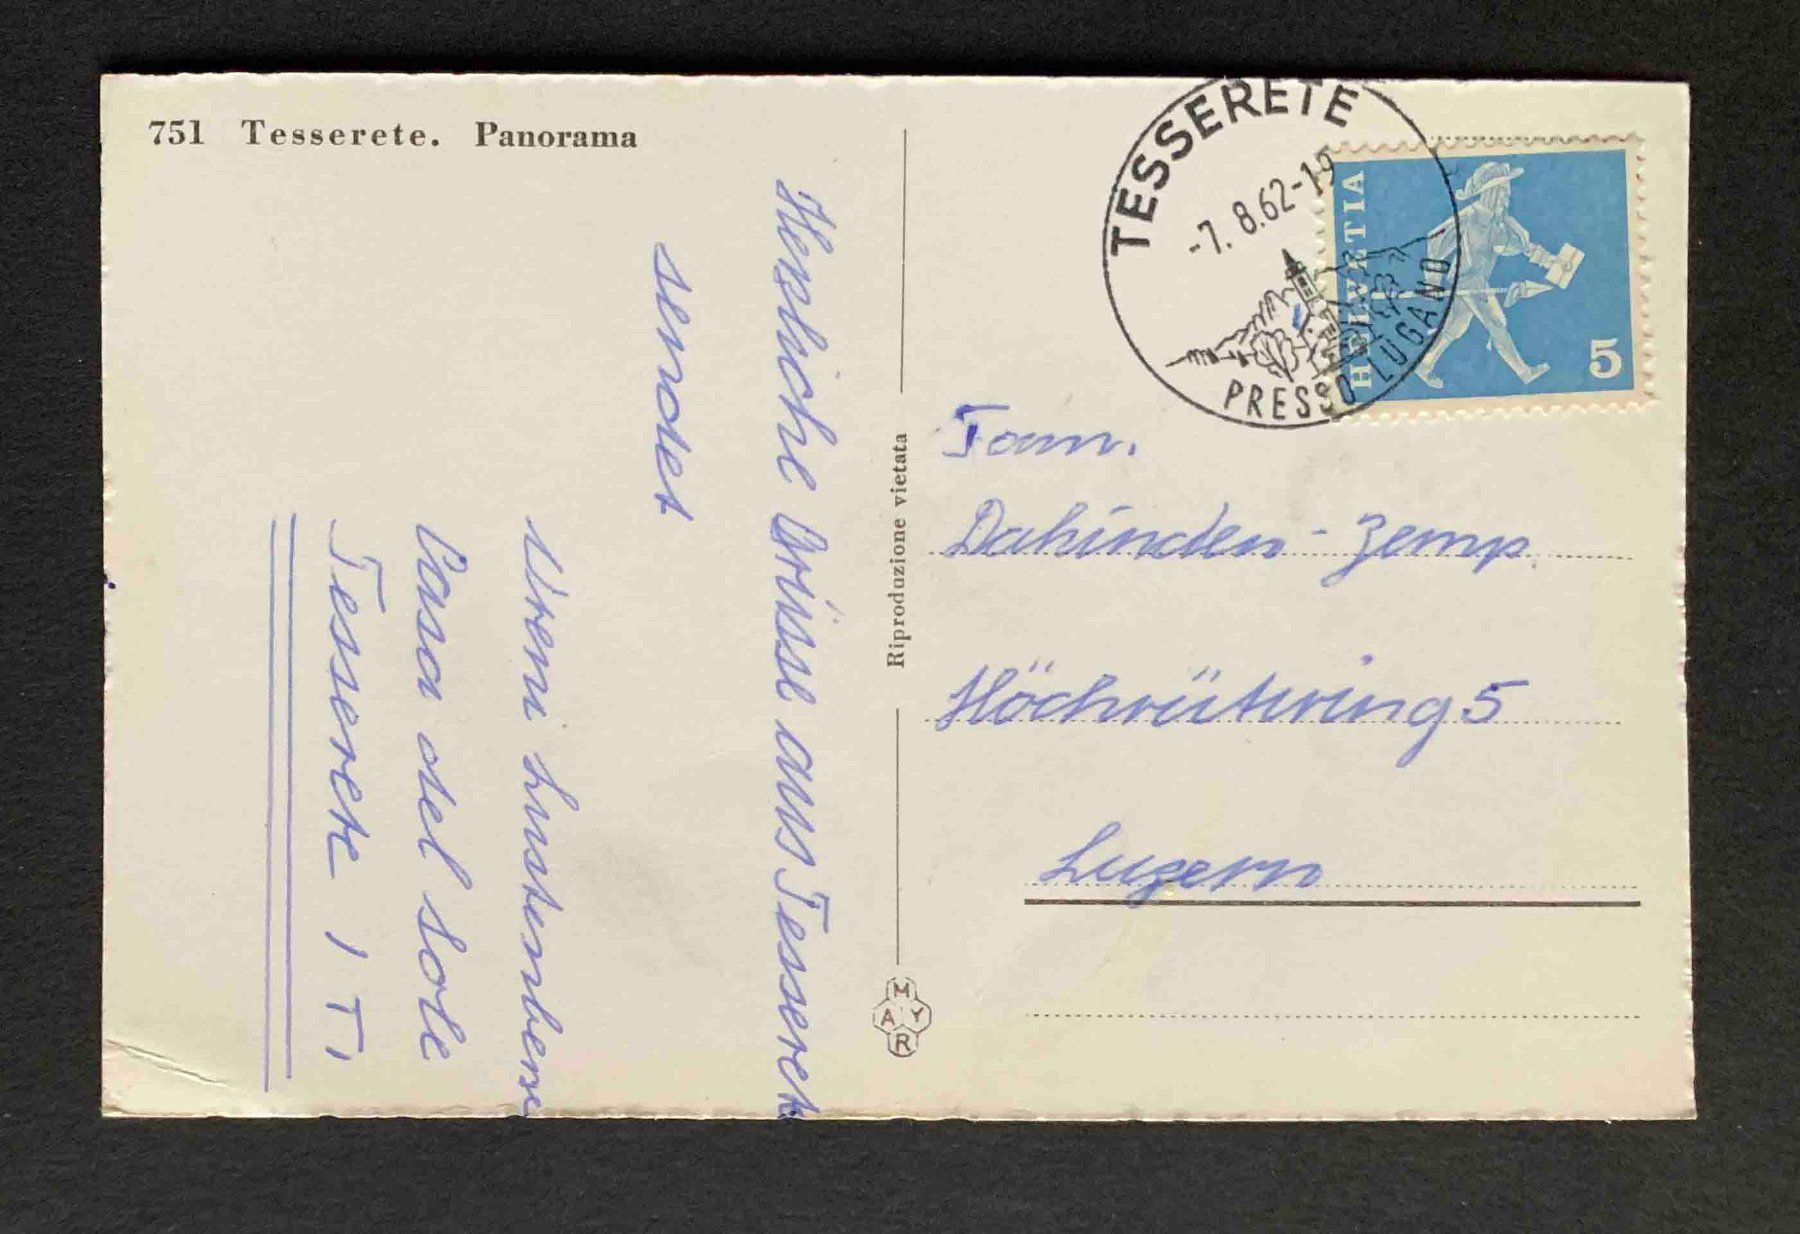 751 Tesserete. Panorama
Herzliche Grüsse aus Tesserete
sendet
Vreni Lustenberg
Casa del Sole
Tesserete / T.
Riproduzione vietata
MAYR
TESSERETE
-7. 8.62-15
PRESSO LUGANO
HELVETIA
5
Fam.
Dahinden - Zemp
Höchrütiring 5
Luzern